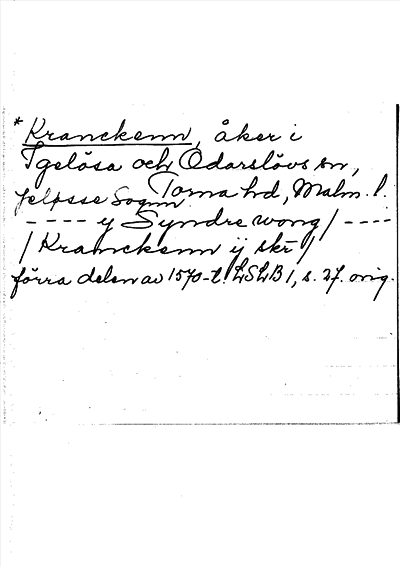 * Kranckenn, åker i
Igelösa och Odarslövs sn,
Torna hd, Malm. l.
Jelpsse Sognn
---- y Syndre wong / ----
/ Kranckenn ij skr /
förra delen av 1570-t. LSLB 1, s. 27. orig.